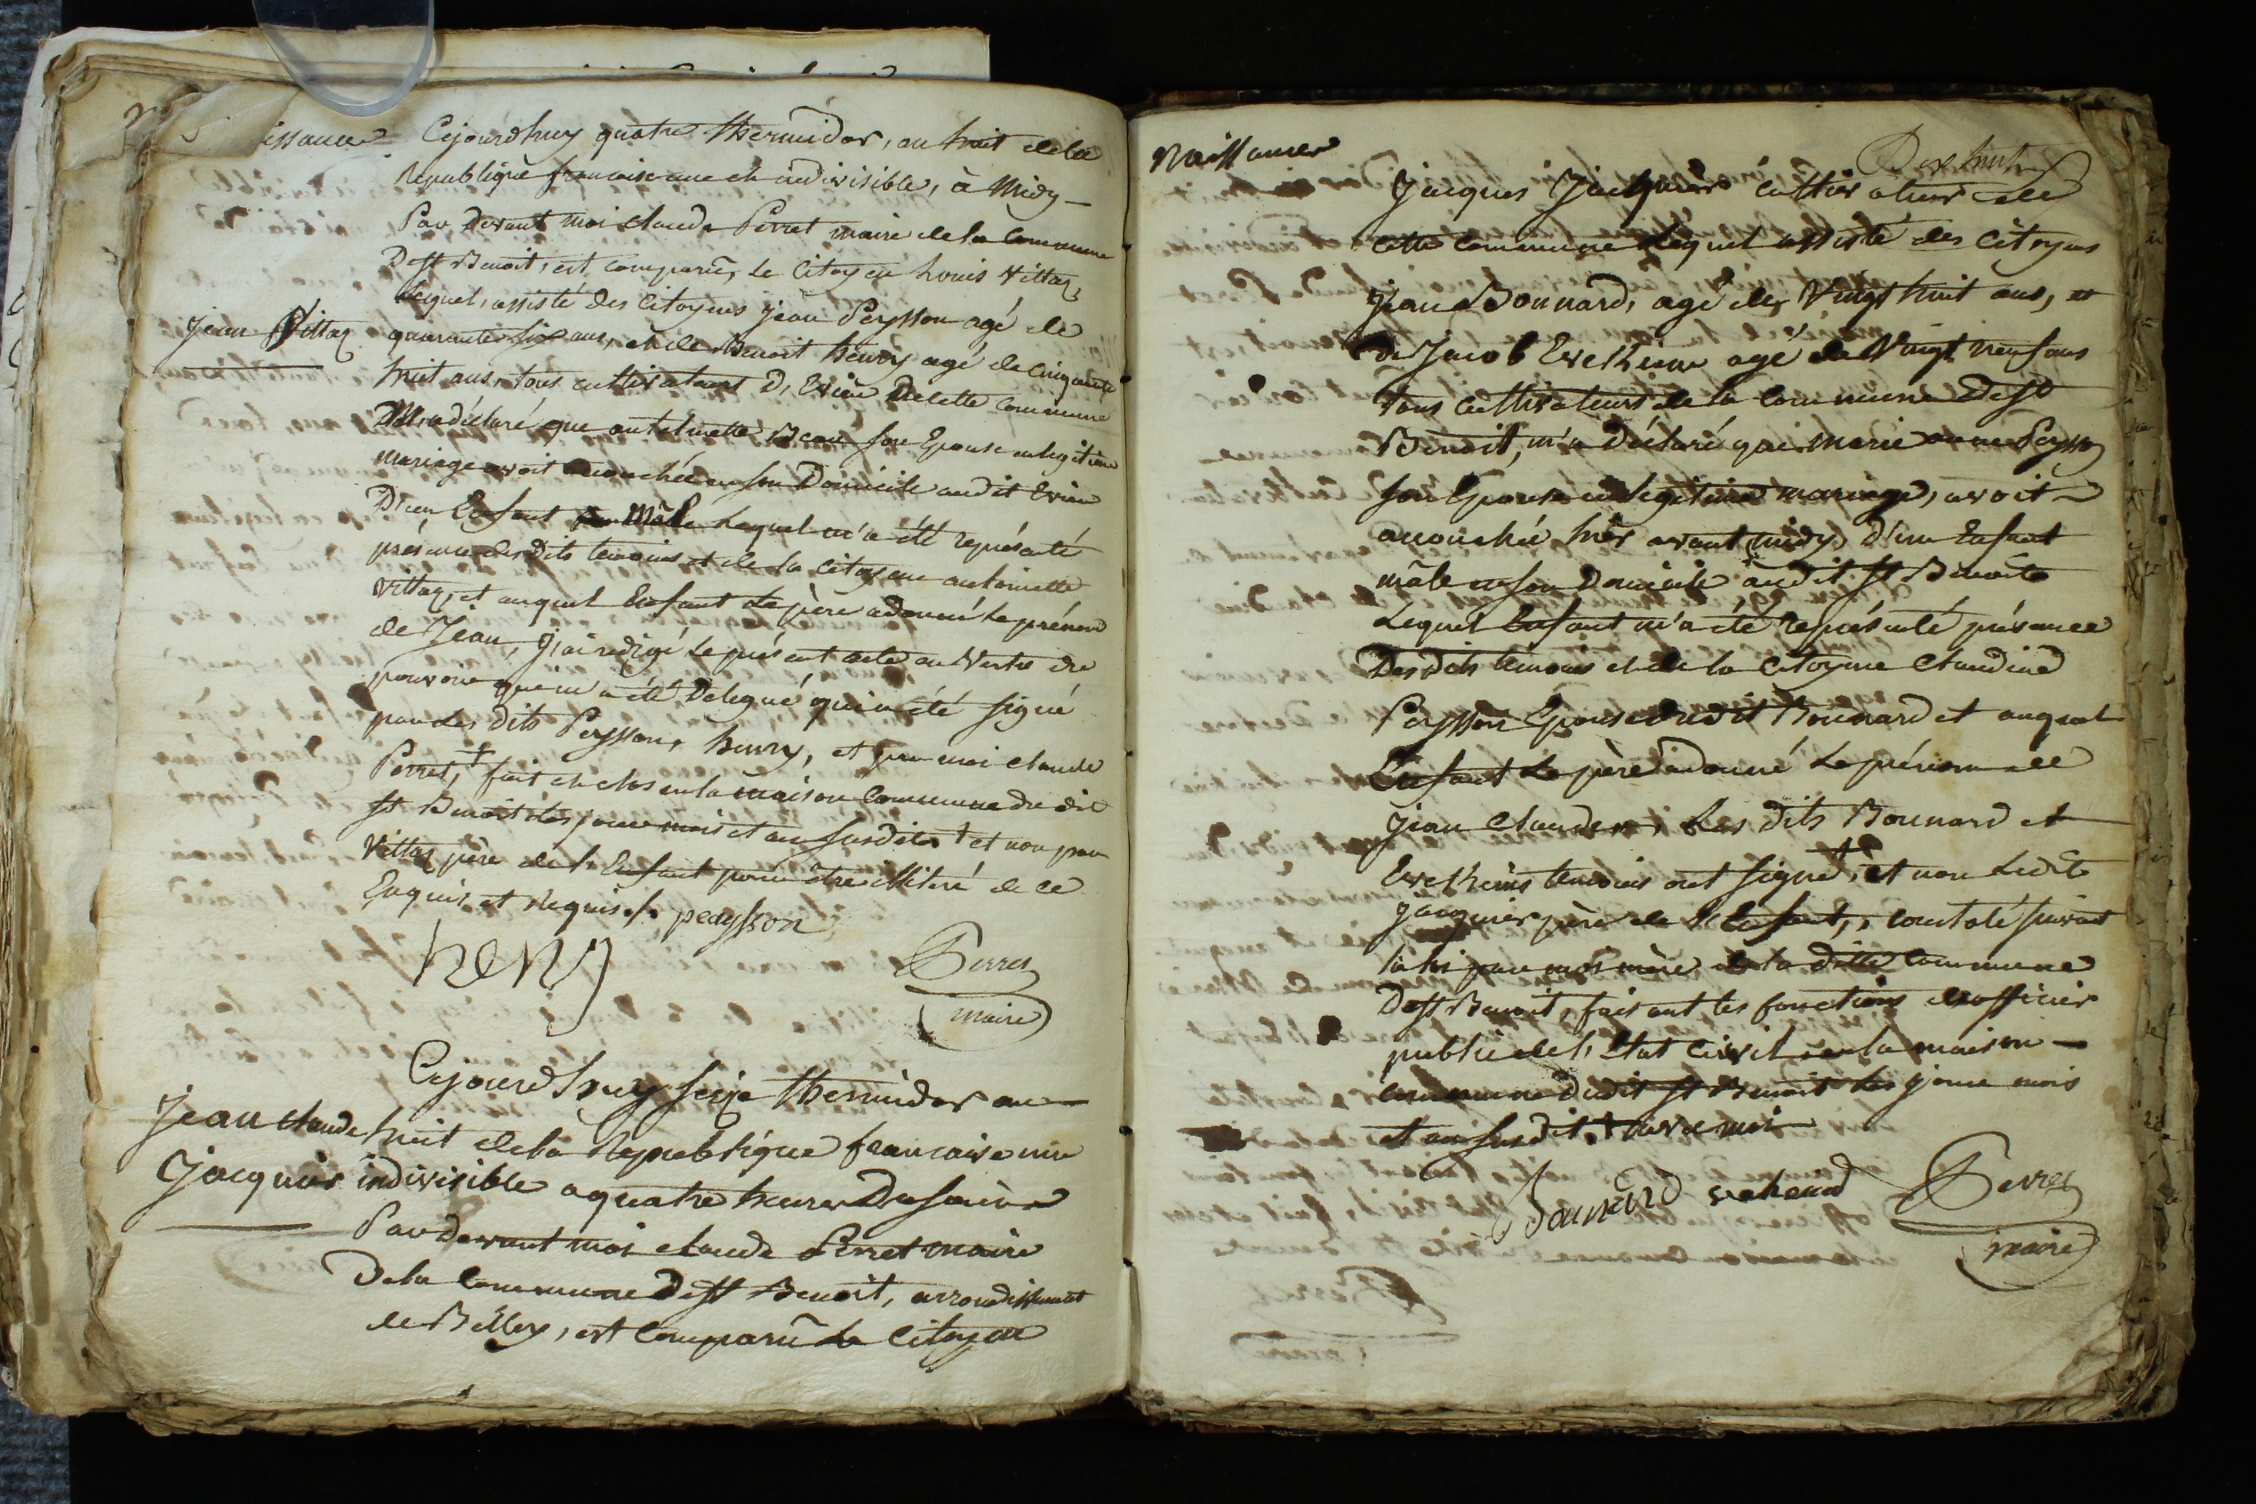 issance
Cejourdhuy quatre thermidor, an huit de la
Republique francaise une et indivisible, à Midy
Par devant moi Claude Perret maire de la Commune
De St Benoit, est comparû, Le Citoyen Louis Vittaz,
Lequel, assisté des Citoyens jean Peysson agé de
Jean Vittaz
quarante six ans, et de Benoit henry agé de cinquante
huit ans, tous cultivateurs D'Evieu De cette Commune
M'a déclaré que Beau son Epouse en legitime
mariage avoit accouchée en son Domicile audit Evieu
D'un Enfant Mâle Lequel m'a été représenté
présence des dits temoins et de la citoyene antoinette
Vittaz, et auquel Enfant Le père a donné Le prénom
de Jean, j'ai redigé Le présent acte en Vertu du
pouvoir qui m'a été Delegué qui a été signé
par Les dits Peysson, henry, et par moi Claude
Perret, + fait et clos en la maison Commune du dit
St Benoit Les jour mois et an susdits + et non par
Vittaz père de l'Enfant pour être illiteré de ce
Enquis et Requis /. peaysson
henry
Perret
maire
Cejourdhuy seize thermidor an
Jean Claude
huit de la Republique francaise une
Jacquier
indivisible a quatre heures Du soir
Par Devant moi Claude Perret maire
De la Commune De St Benoit, arrondissement
de Belley, est Comparû Le Citoyen
Naissances
Dix huit
Jacques Jacquier cultivateur de
cette commune Lequel assisté des Citoyens
Jean Bonnard, agé de Vingt huit ans, et
De Jacob agé de Vingt neuf ans
tous cultivateurs de la Commune De St
Benoit, m'a Déclaré que marie anne Peysson
son Epouse en légitime mariage, avoit
accouchée hièr avant midy, D'un Enfant
mâle en son Domicile audit St Benoit
Lequel Enfant m'a été représenté présence
Des dits temoins et de la Citoyene Claudine
Peysson Epouse dudit Bonnard et auquel
Enfant Le père a donné Le prénom de
Jean Claude, Les dits Bonnard et
temoins ont signé + et non Ledit
Jacquier père de l'Enfant, constaté suivant
la loi par moi mère de la ditte Commune
De St Benoit, faisant les fonctions d'officier
public de l'Etat Civil, en la maison
commune dudit St Benoit Les jour mois
et an susdit. + avec moi
Bonnard
Perret
maire